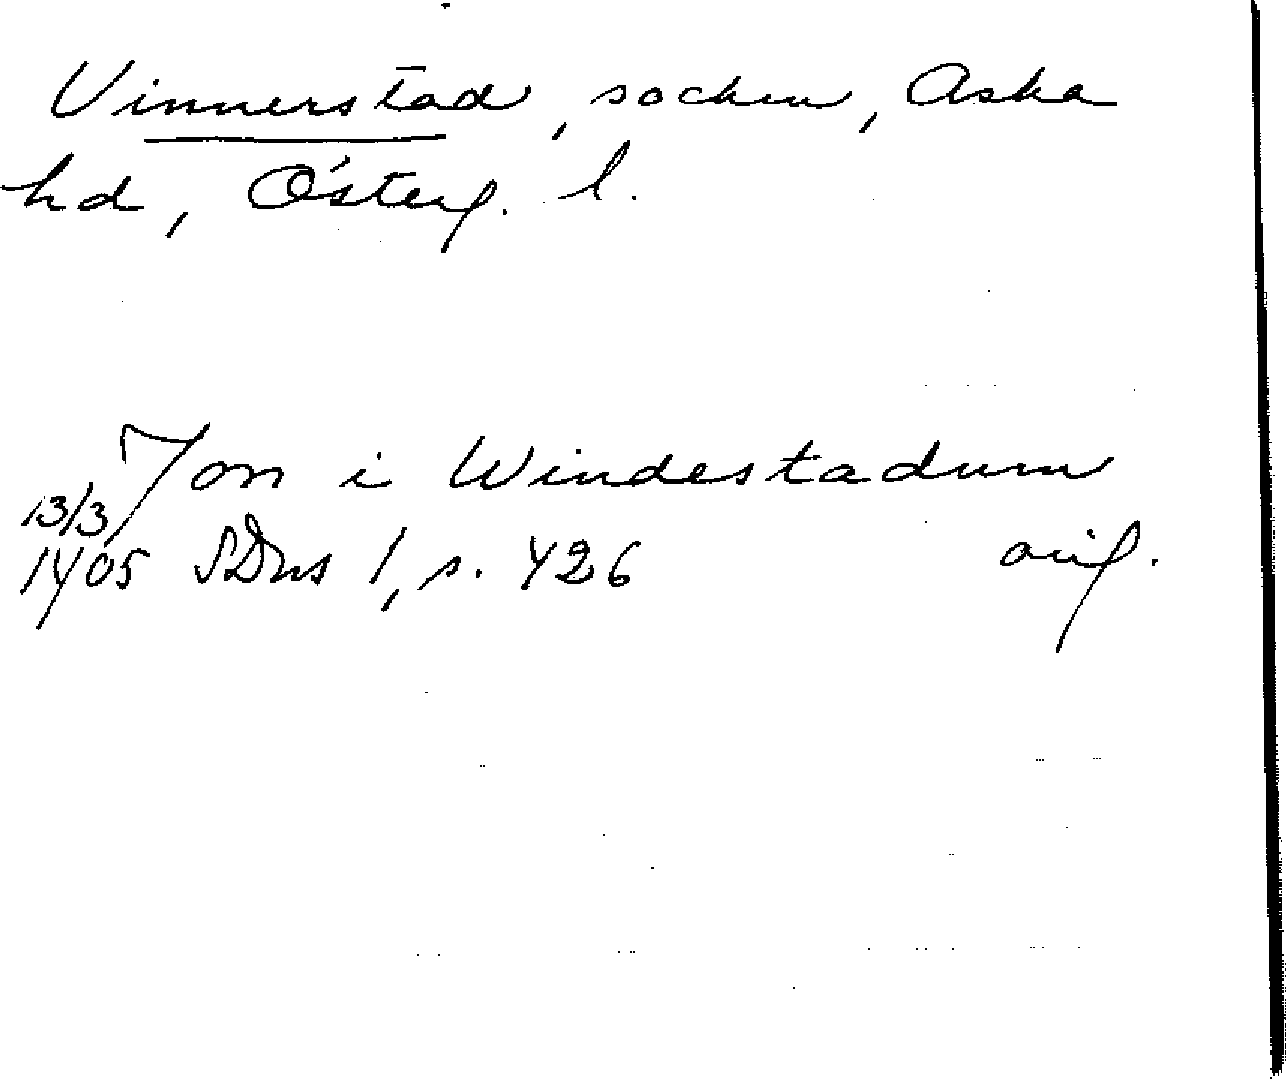 Vinnerstad, socken, Aska
hd, Österg. l.
Jon i Windestadum
13/3
1405 SDns 1, s. 426 orig.